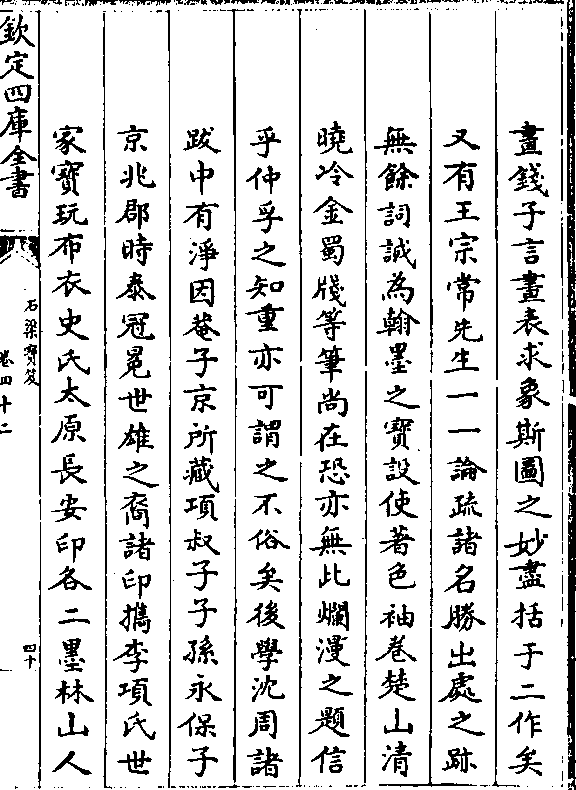 畫錢子言畫表求象斯圖之妙盡括于二作矣
又有王宗常先生一一論疏諸名勝出處之跡
無餘詞誠為翰墨之寶設使著色袖卷楚山清
曉冷金蜀牋等筆尚在恐亦無此爛漫之題信
乎仲孚之知重亦可謂之不俗矣後學沈周諸
跋中有淨因菴子京所藏項叔子子孫永保子
京兆郡時泰冠冕世雄之裔諸印擕李項氏世
家寶玩布衣史氏太原長安印各二墨林山人
欽定四庫全書
石渠寶笈
卷四十二
四十